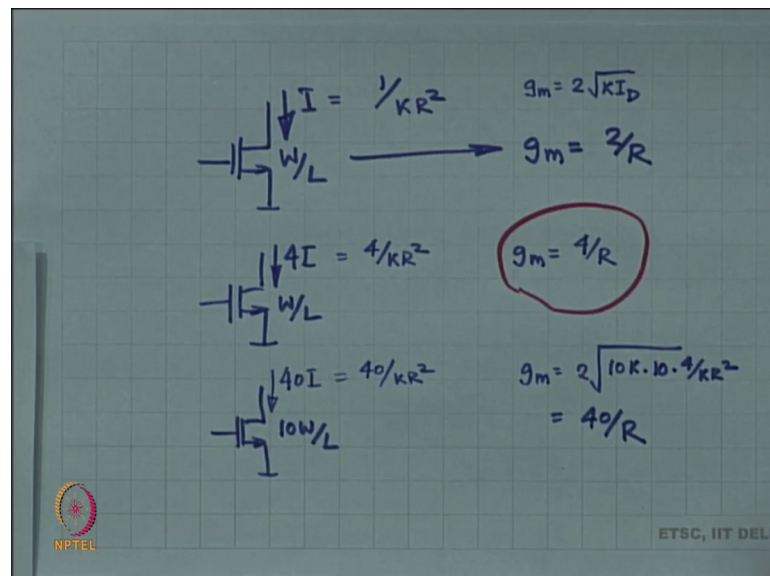 I = 1/KR² gm = 2√KI_D
W/L gm = 2/R
4I = 4/KR² gm = 4/R
W/L
40I = 40/KR² gm = 2√10K·10·4/KR²
10W/L = 40/R
NPTEL
ETSC, IIT DEL